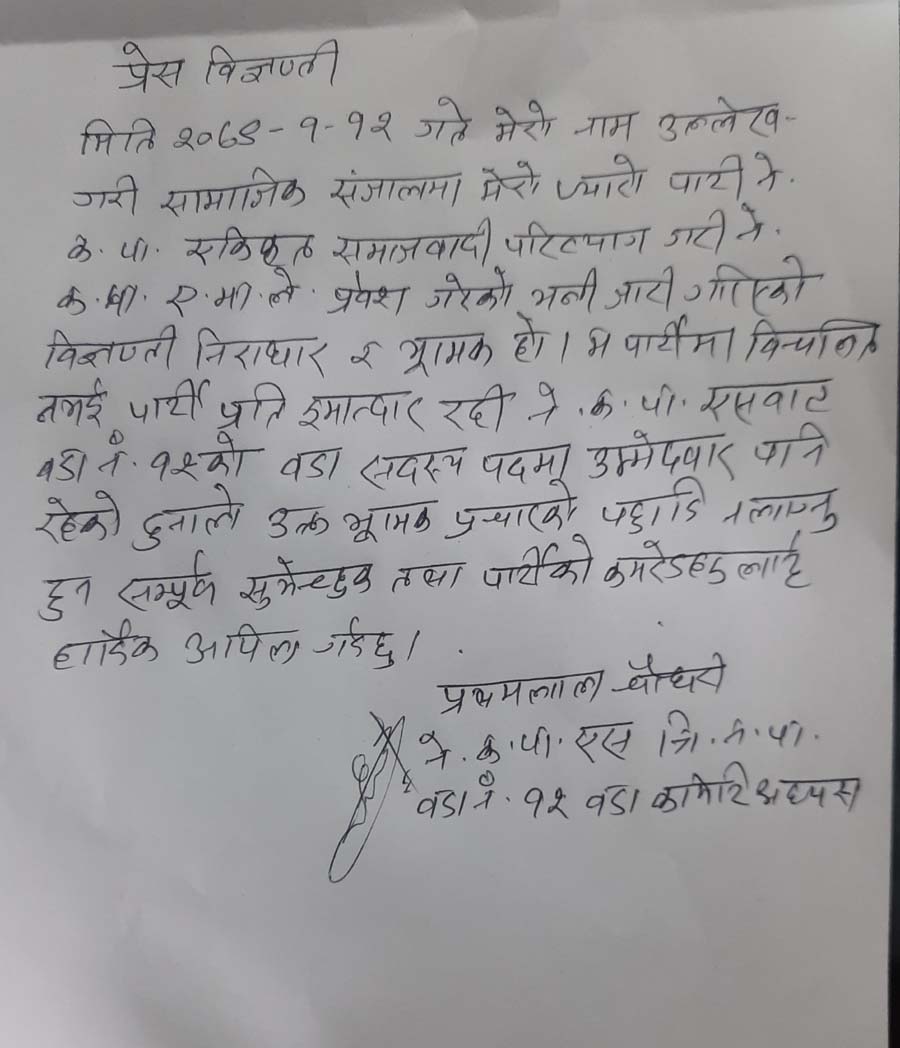 प्रेस विज्ञप्ती
मिति २०७९-१-१२ गते मेरो नाम उल्लेख
गरी सामाजिक संजालमा मेरो प्यारो पार्टी ने.
क. पा. एकिकृत समाजवादी परित्याग गरी ने.
क. पा. ए. मा. ले. प्रवेश गरेको भनी जारी गरिएको
विज्ञप्ती निराधार र भ्रामक हो। म पार्टीमा विचलित
नभई पार्टी प्रति इमान्दार रही ने. क. पा. एसबाट
वडा नं. १२को वडा सदस्य पदमा उम्मेदवार पनि
रहेको हुनाले उक्त भ्रामक प्रचारको पछाडि नलाग्नु
हुन सम्पूर्ण सुभेच्छुक तथा पार्टीको कमरेडहरु लाई
हार्दिक अपिल गर्दछु।
प्रथमलाल चौधरी
ने. क. पा. एस त्रि. न. पा.
वडा नं. १२ वडा कमिटि अध्यक्ष